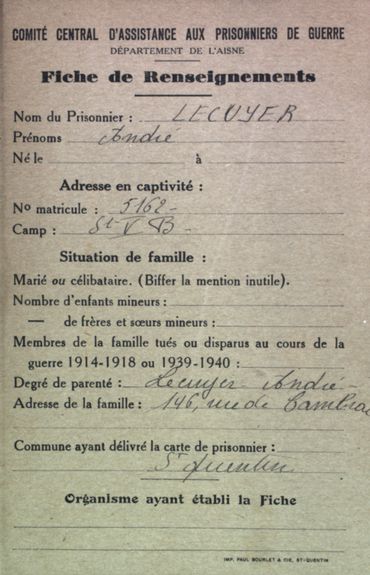 COMITÉ CENTRAL D'ASSISTANCE AUX PRISONNIERS DE GUERRE
DÉPARTEMENT DE L'AISNE
Fiche de Renseignements
Nom du Prisonnier : LECUYER
Prénoms André
Né le à
Adresse en captivité :
No matricule : 5162
Camp : St V B
Situation de famille :
Marié ou célibataire. (Biffer la mention inutile).
Nombre d'enfants mineurs :
— de frères et sœurs mineurs :
Membres de la famille tués ou disparus au cours de la
guerre 1914-1918 ou 1939-1940 :
Degré de parenté : Lecuyer André
Adresse de la famille : 146, rue de Cambrai
Commune ayant délivré la carte de prisonnier :
St Quentin
Organisme ayant établi la Fiche
IMP. PAUL BOURLET & CIE, ST-QUENTIN